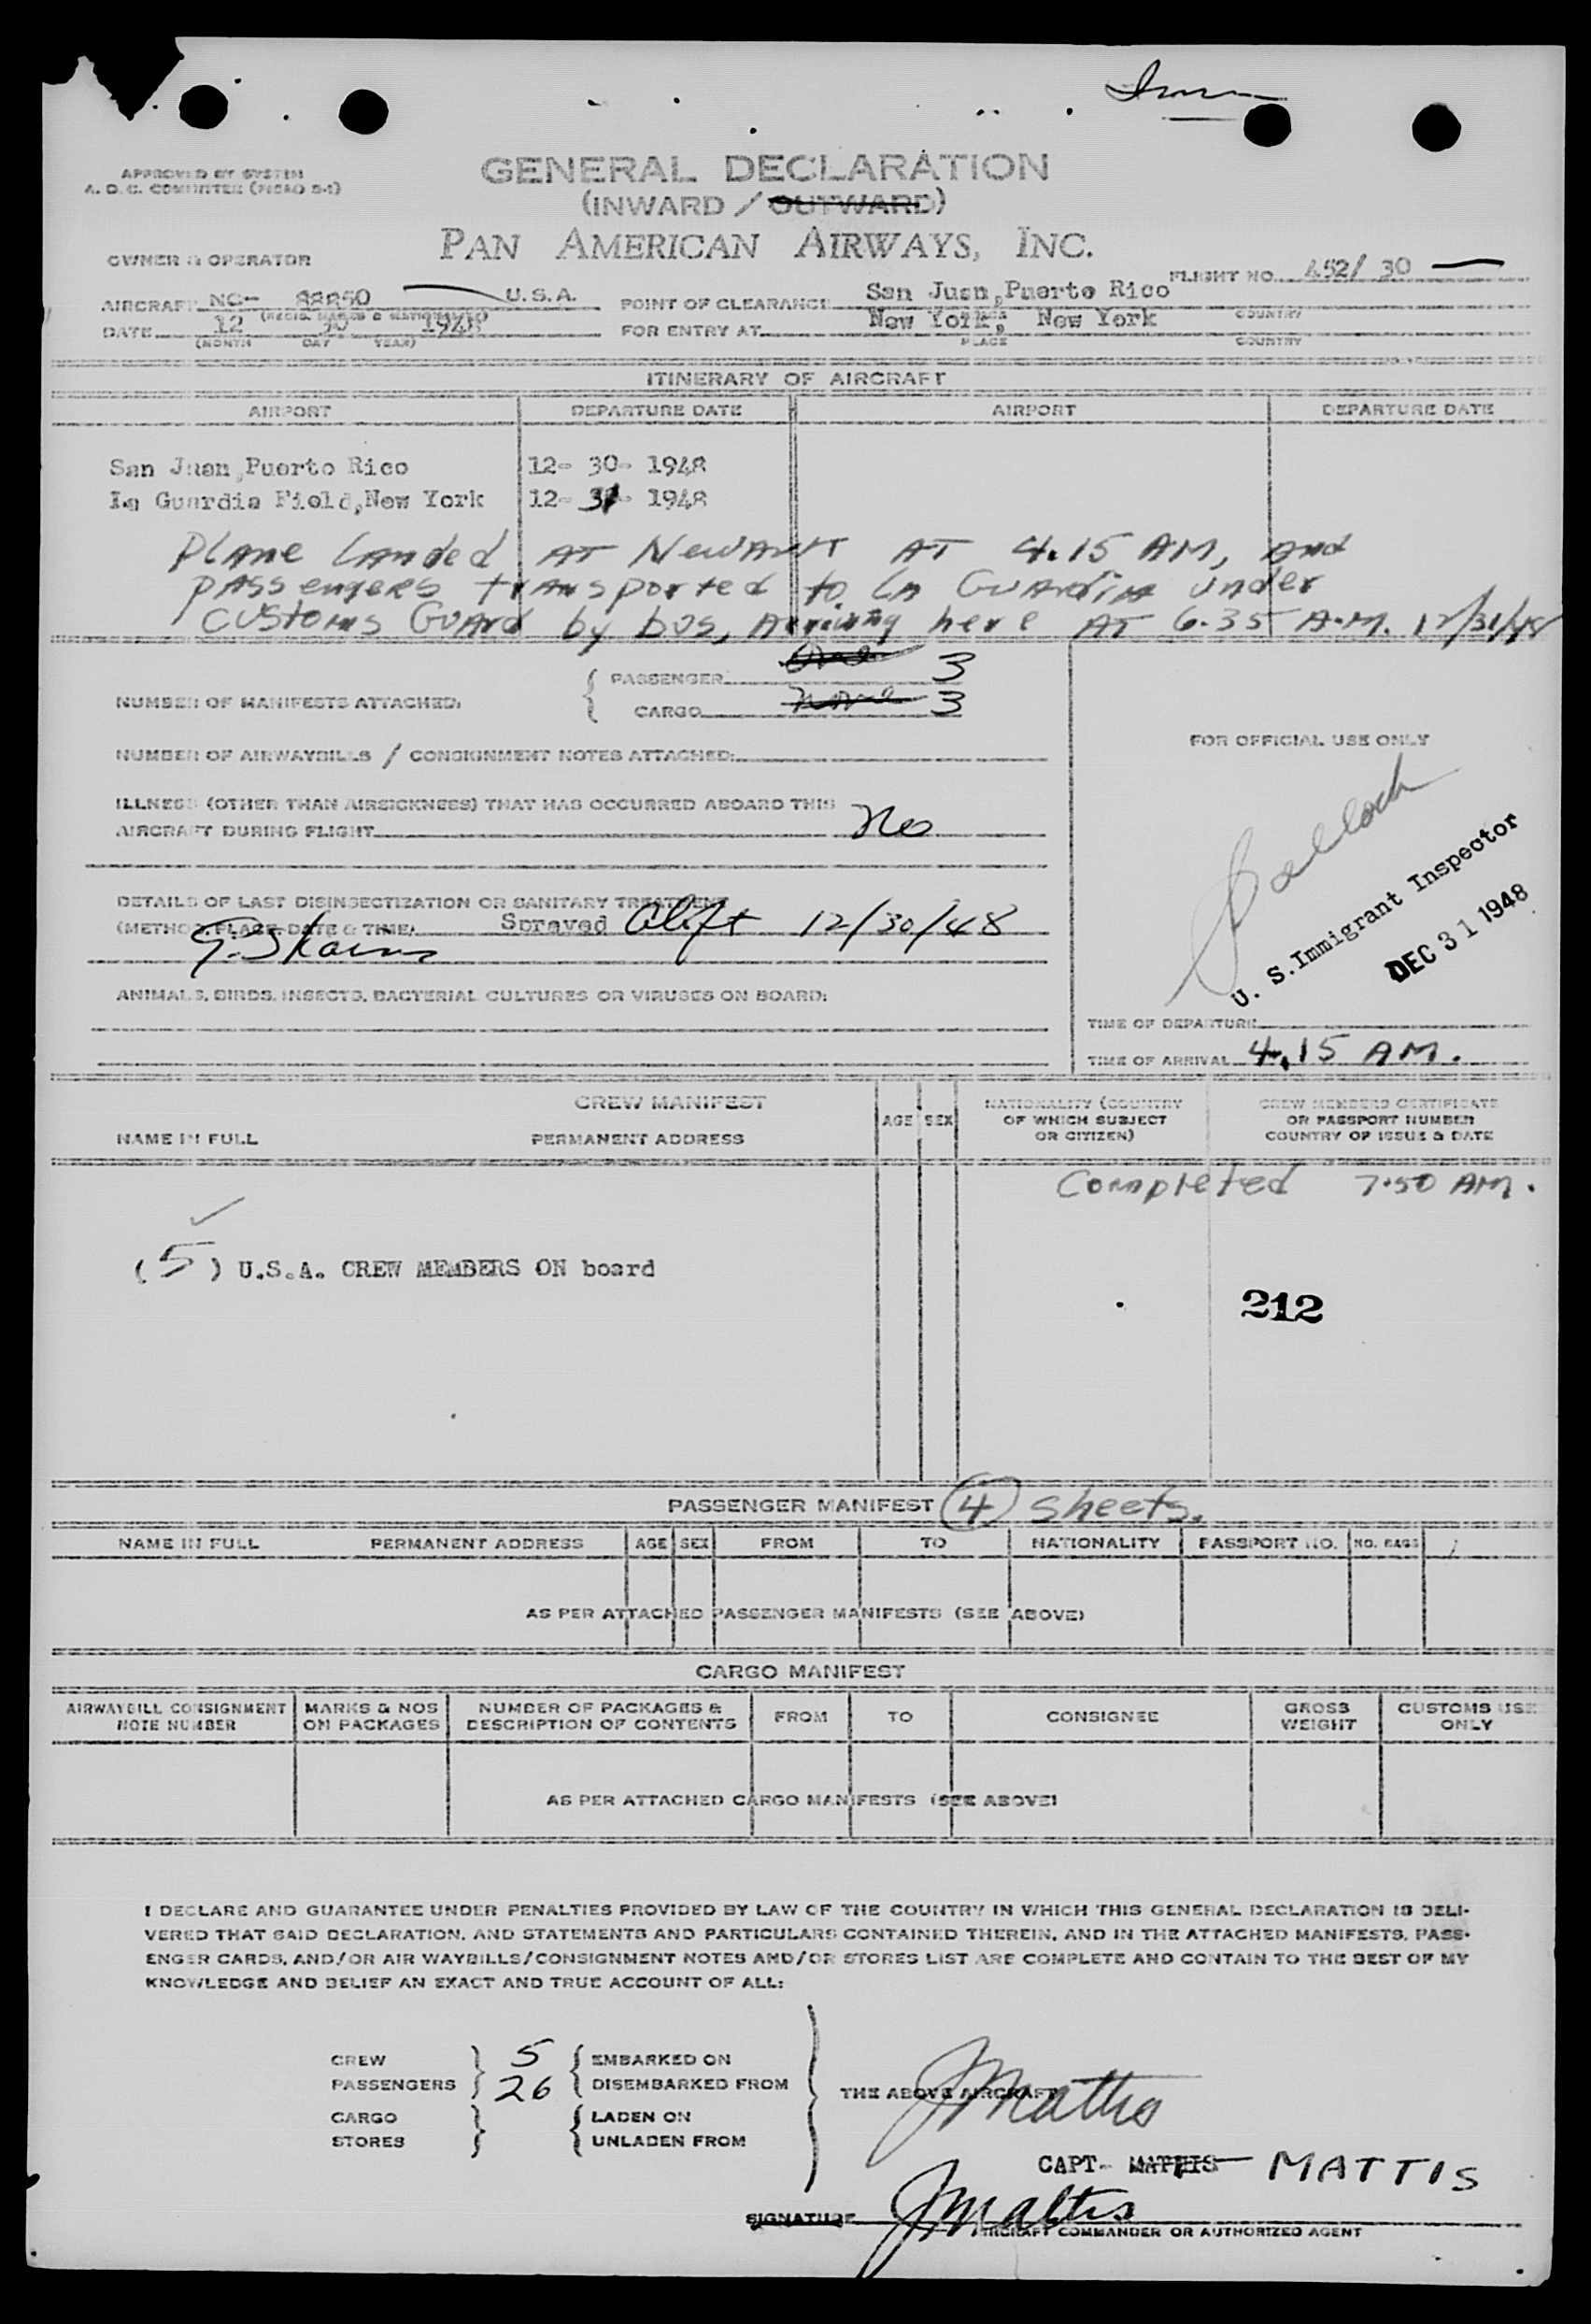 APPROVED BY SYSTEM
GENERAL DECLARATION
(INWARD / OUTWARD)
PAN AMERICAN AIRWAYS, INC.
OWNER & OPERATOR
FLIGHT NO. 452/ 30
AIRCRAFT NC- 88850 U.S.A. POINT OF CLEARANCE San Juan, Puerto Rico
COUNTRY
DATE 12 30 1948 FOR ENTRY AT New York, New York
(MONTH DAY YEAR) PLACE COUNTRY
ITINERARY OF AIRCRAFT
AIRPORT DEPARTURE DATE AIRPORT DEPARTURE DATE
San Juan, Puerto Rico 12- 30- 1948
La Guardia Field, New York 12- 31- 1948
Plane Landed AT Newark AT 4.15 AM, and
passengers transported to La Guardia under
Customs Guard by bus, Arriving here AT 6.35 A.M. 12/31/48
NUMBER OF MANIFESTS ATTACHED:
PASSENGER One 3
CARGO None 3
FOR OFFICIAL USE ONLY
NUMBER OF AIRWAYBILLS / CONSIGNMENT NOTES ATTACHED:
ILLNESS (OTHER THAN AIRSICKNESS) THAT HAS OCCURRED ABOARD THIS
AIRCRAFT DURING FLIGHT No
U. S. Immigrant Inspector
DEC 31 1948
DETAILS OF LAST DISINSECTIZATION OR SANITARY TREATMENT
(METHOD, PLACE, DATE & TIME) Sprayed Alift 12/30/48
ANIMALS, BIRDS, INSECTS, BACTERIAL CULTURES OR VIRUSES ON BOARD:
TIME OF DEPARTURE
TIME OF ARRIVAL 4.15 AM.
CREW MANIFEST
NAME IN FULL PERMANENT ADDRESS AGE SEX NATIONALITY (COUNTRY OF WHICH SUBJECT OR CITIZEN) CREW MEMBERS CERTIFICATE OR PASSPORT NUMBER COUNTRY OF ISSUE & DATE
Completed 7.50 AM.
(5) U.S.A. CREW MEMBERS ON board
212
PASSENGER MANIFEST 4 sheets.
NAME IN FULL PERMANENT ADDRESS AGE SEX FROM TO NATIONALITY PASSPORT NO. NO. BAGS
AS PER ATTACHED PASSENGER MANIFESTS (SEE ABOVE)
CARGO MANIFEST
AIRWAYBILL CONSIGNMENT NOTE NUMBER MARKS & NOS ON PACKAGES NUMBER OF PACKAGES & DESCRIPTION OF CONTENTS FROM TO CONSIGNEE GROSS WEIGHT CUSTOMS USE ONLY
AS PER ATTACHED CARGO MANIFESTS (SEE ABOVE)
I DECLARE AND GUARANTEE UNDER PENALTIES PROVIDED BY LAW OF THE COUNTRY IN WHICH THIS GENERAL DECLARATION IS DELI-
VERED THAT SAID DECLARATION, AND STATEMENTS AND PARTICULARS CONTAINED THEREIN, AND IN THE ATTACHED MANIFESTS, PASS-
ENGER CARDS, AND/OR AIR WAYBILLS/CONSIGNMENT NOTES AND/OR STORES LIST ARE COMPLETE AND CONTAIN TO THE BEST OF MY
KNOWLEDGE AND BELIEF AN EXACT AND TRUE ACCOUNT OF ALL:
CREW 5 EMBARKED ON
PASSENGERS 26 DISEMBARKED FROM
THE ABOVE AIRCRAFT
JMattis
CARGO LADEN ON
STORES UNLADEN FROM
CAPT- MATHIS MATTIS
SIGNATURE JMattis
AIRCRAFT COMMANDER OR AUTHORIZED AGENT